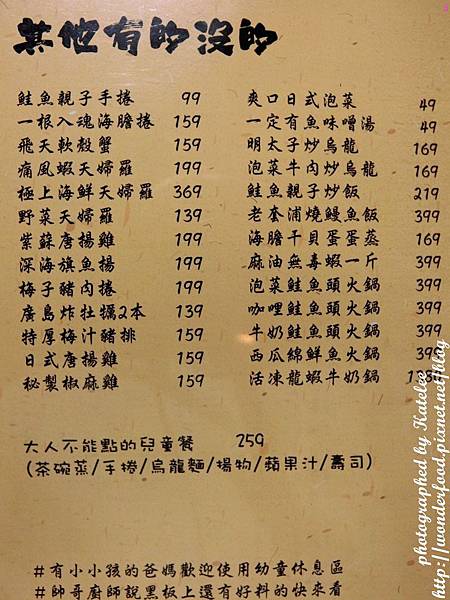 其他有的沒的
鮭魚親子手捲 99
一根入魂海膽捲 159
飛天軟殼蟹 159
痛風蝦天婦羅 199
極上海鮮天婦羅 369
野菜天婦羅 139
紫蘇唐揚雞 199
深海旗魚揚 199
梅子豬肉捲 199
廣島炸牡蠣2本 139
特厚梅汁豬排 159
日式唐揚雞 159
秘製椒麻雞 159
爽口日式泡菜 49
一定有魚味噌湯 49
明太子炒烏龍 169
泡菜牛肉炒烏龍 169
鮭魚親子炒飯 219
老奎浦燒鰻魚飯 399
海膽干貝蛋蛋蒸 169
麻油無毒蝦一斤 399
泡菜鮭魚頭火鍋 399
咖哩鮭魚頭火鍋 399
牛奶鮭魚頭火鍋 399
西瓜綿鮮魚火鍋 399
活凍龍蝦牛奶鍋
大人不能點的兒童餐 259
(茶碗蒸/手捲/烏龍麵/揚物/蘋果汁/壽司)
#有小小孩的爸媽歡迎使用幼童休息區
#帥哥廚師說黑板上還有好料的快來看
photographed by Katelee
http://wonderfood.pixnet.net/blog